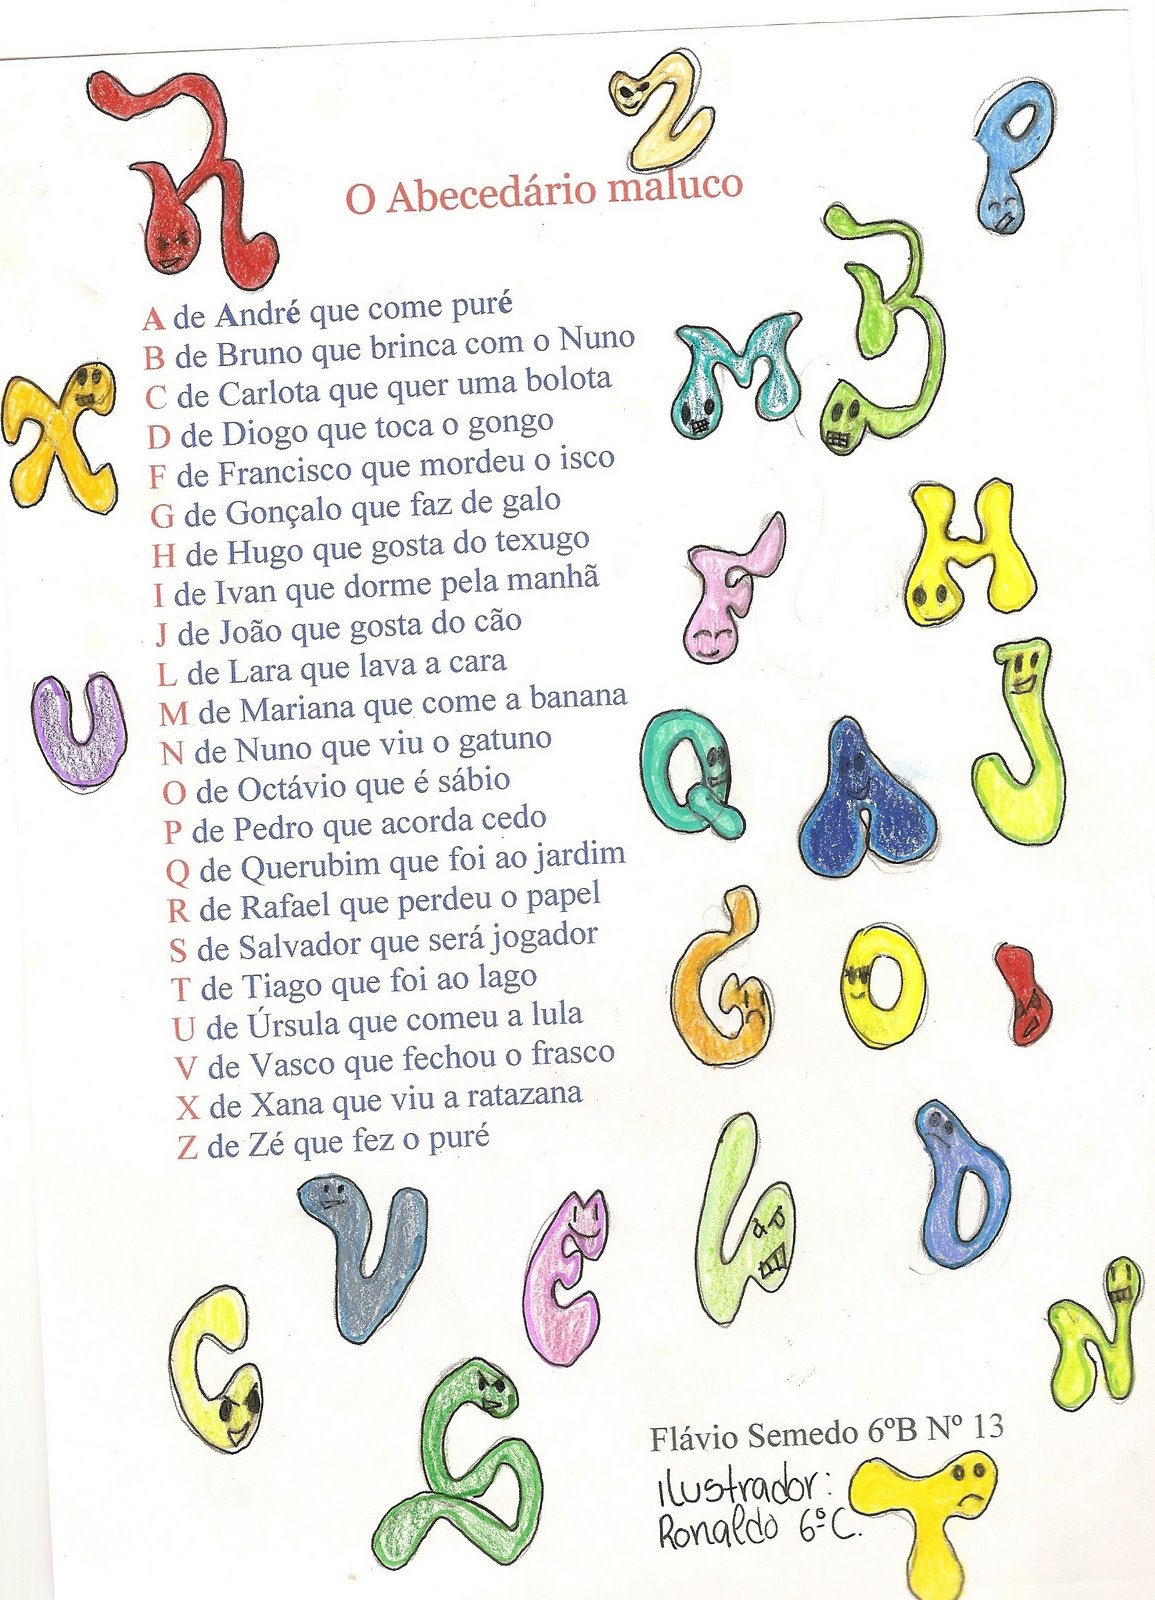 O Abecedário maluco
A de André que come puré
B de Bruno que brinca com o Nuno
C de Carlota que quer uma bolota
D de Diogo que toca o gongo
F de Francisco que mordeu o isco
G de Gonçalo que faz de galo
H de Hugo que gosta do texugo
I de Ivan que dorme pela manhã
J de João que gosta do cão
L de Lara que lava a cara
M de Mariana que come a banana
N de Nuno que viu o gatuno
O de Octávio que é sábio
P de Pedro que acorda cedo
Q de Querubim que foi ao jardim
R de Rafael que perdeu o papel
S de Salvador que será jogador
T de Tiago que foi ao lago
U de Úrsula que comeu a lula
V de Vasco que fechou o frasco
X de Xana que viu a ratazana
Z de Zé que fez o puré
R
Z
P
B
M
X
F
H
U
Q
A
J
G
O
I
L
D
V
E
C
S
N
Flávio Semedo 6ºB Nº 13
Ilustrador:
Ronaldo 6ºC.
T